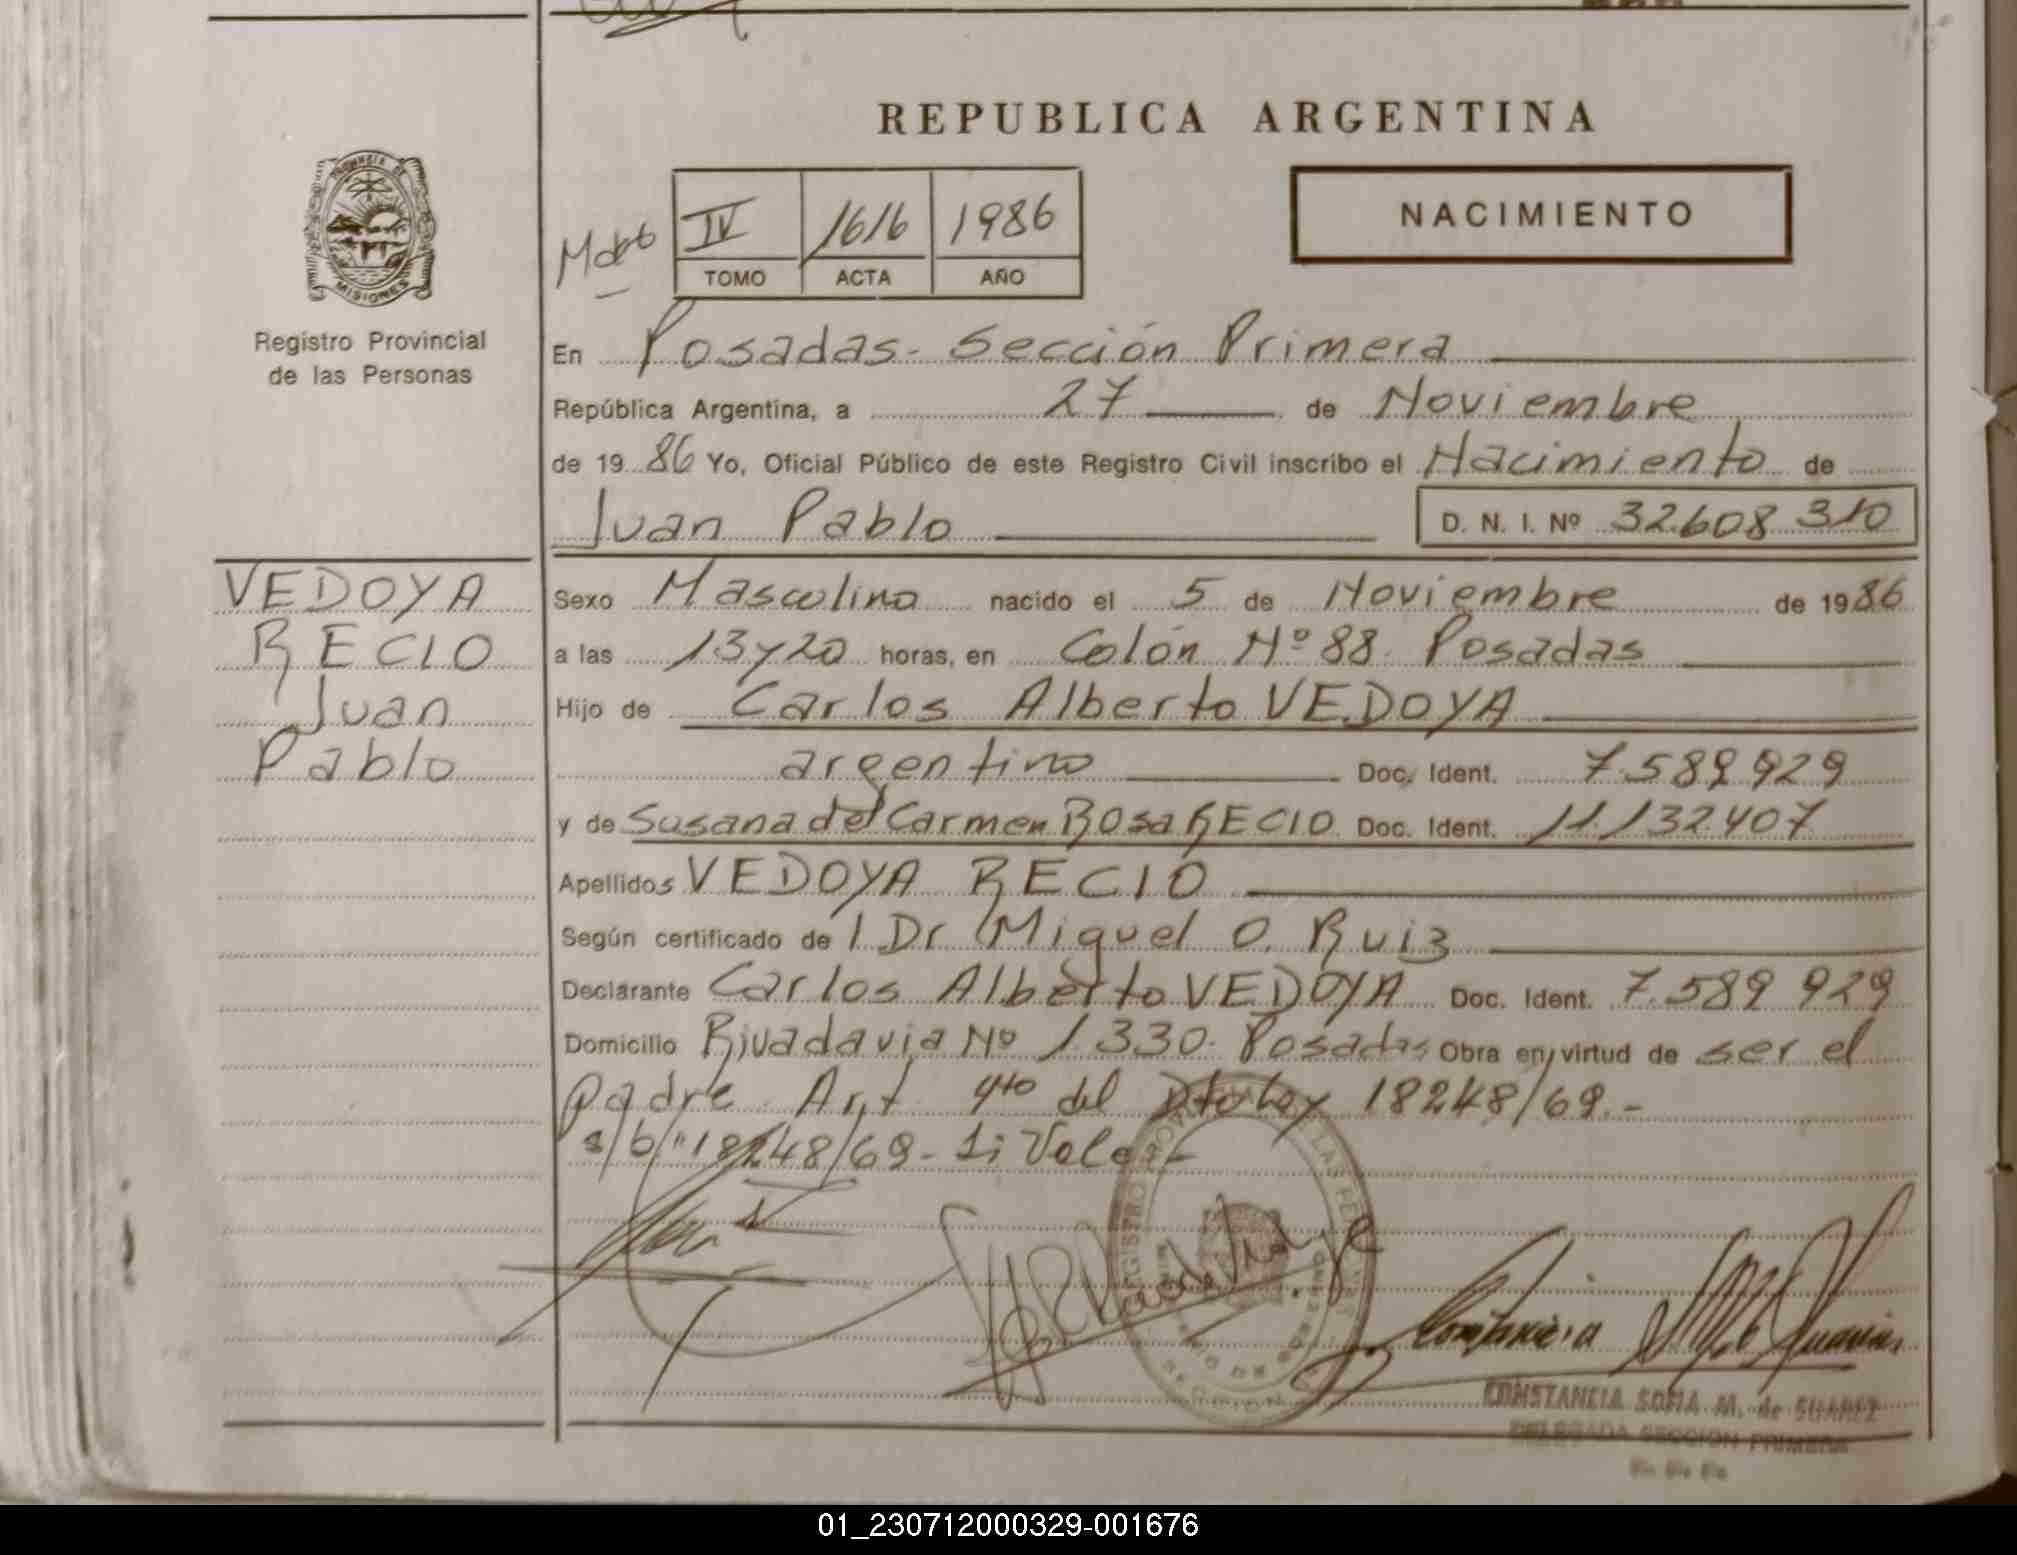 REPUBLICA ARGENTINA
NACIMIENTO
IV 1616 1986
TOMO ACTA AÑO
PROVINCIA DE
MISIONES
Registro Provincial
de las Personas
En Posadas- Sección Primera
República Argentina, a 27 de Noviembre
de 1986 Yo, Oficial Público de este Registro Civil inscribo el Nacimiento de
Juan Pablo D. N. I. Nº 32.608 310
VEDOYA
RECIO
Juan
Pablo
Sexo Masculino nacido el 5 de Noviembre de 1986
a las 13 y 20 horas, en Colón Nº 88. Posadas
Hijo de Carlos Alberto VEDOYA
argentino Doc. Ident. 7.589 929
y de Susana del Carmen Rosa RECIO Doc. Ident. 11.132.407
Apellidos VEDOYA RECIO
Según certificado de l Dr Miguel O. Ruiz
Declarante Carlos Alberto VEDOYA Doc. Ident. 7.589 929
Domicilio Rivadavia Nº 1.330. Posadas Obra en virtud de ser el
padre. Art 4to del Dto Ley 18248/69.-
s/b "18248/69- Si Vale.-
CONSTANCIA SOFIA M. de SUAREZ
DELEGADA SECCION PRIMERA
01_230712000329-001676